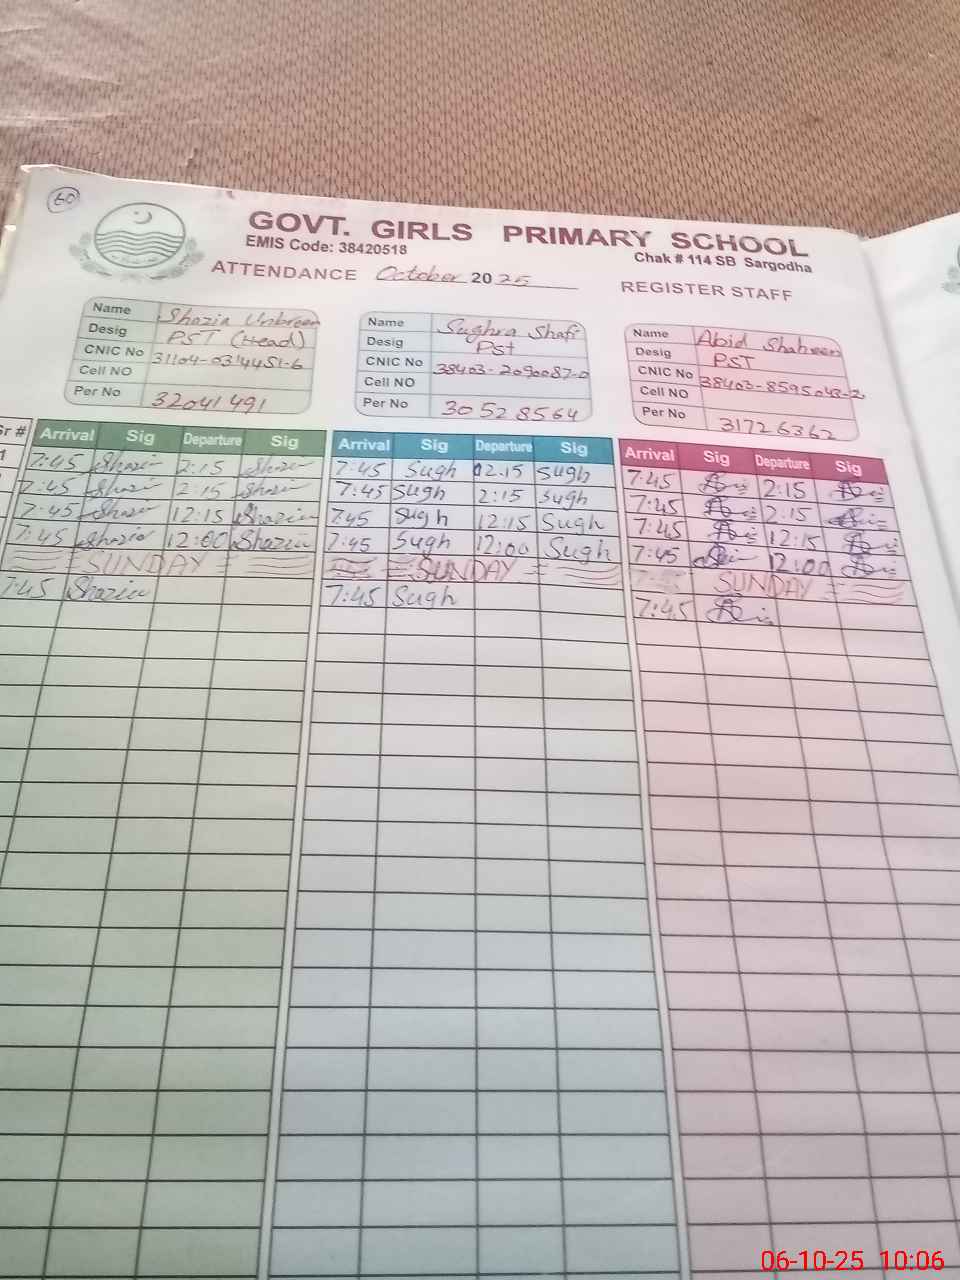 60
GOVT. GIRLS PRIMARY SCHOOL
EMIS Code: 38420518 Chak # 114 SB Sargodha
ATTENDANCE October 2025 REGISTER STAFF
Name Shazia Unbreen
Desig PST (Head)
CNIC No 31104-0314451-6
Cell NO
Per No 32041491
Name Sughra Shafi
Desig Pst
CNIC No 38403-2090087-0
Cell NO
Per No 30528564
Name Abid Shaheen
Desig PST
CNIC No 38403-8595043-2
Cell NO
Per No 31726362
Sr # Arrival Sig Departure Sig Arrival Sig Departure Sig Arrival Sig Departure Sig
1 7:45 Shazia 2:15 Shazia 7:45 Sugh 02:15 Sugh 7:45 2:15
7:45 Shazia 2:15 Shazia 7:45 Sugh 2:15 Sugh 7:45 2:15
7:45 Shazia 12:15 Shazia 7:45 Sugh 12:15 Sugh 7:45 12:15
7:45 Shazia 12:00 Shazia 7:45 Sugh 12:00 Sugh 7:45 12:00
SUNDAY SUNDAY SUNDAY
7:45 Shazia 7:45 Sugh 7:45
06-10-25 10:06